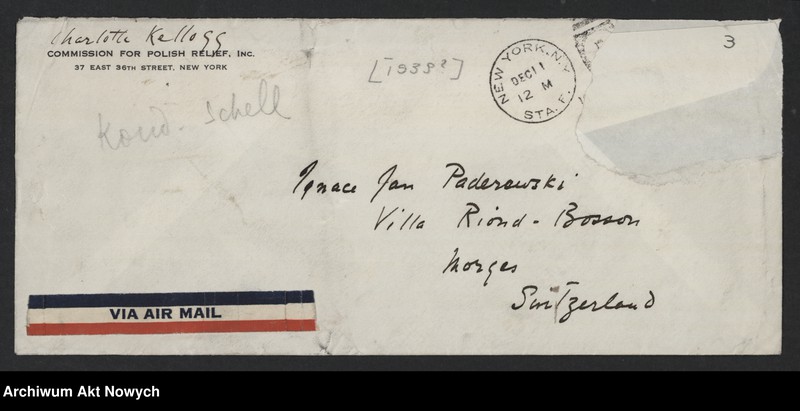 Charlotte Kellogg
COMMISSION FOR POLISH RELIEF, INC.
37 EAST 36TH STREET, NEW YORK
3
[1939?]
NEW YORK, N.Y.
DEC 11
12 M
STA. F.
Kond. Schell
Ignace Jan Paderewski
Villa Riond-Bosson
Morges
Switzerland
VIA AIR MAIL
Archiwum Akt Nowych